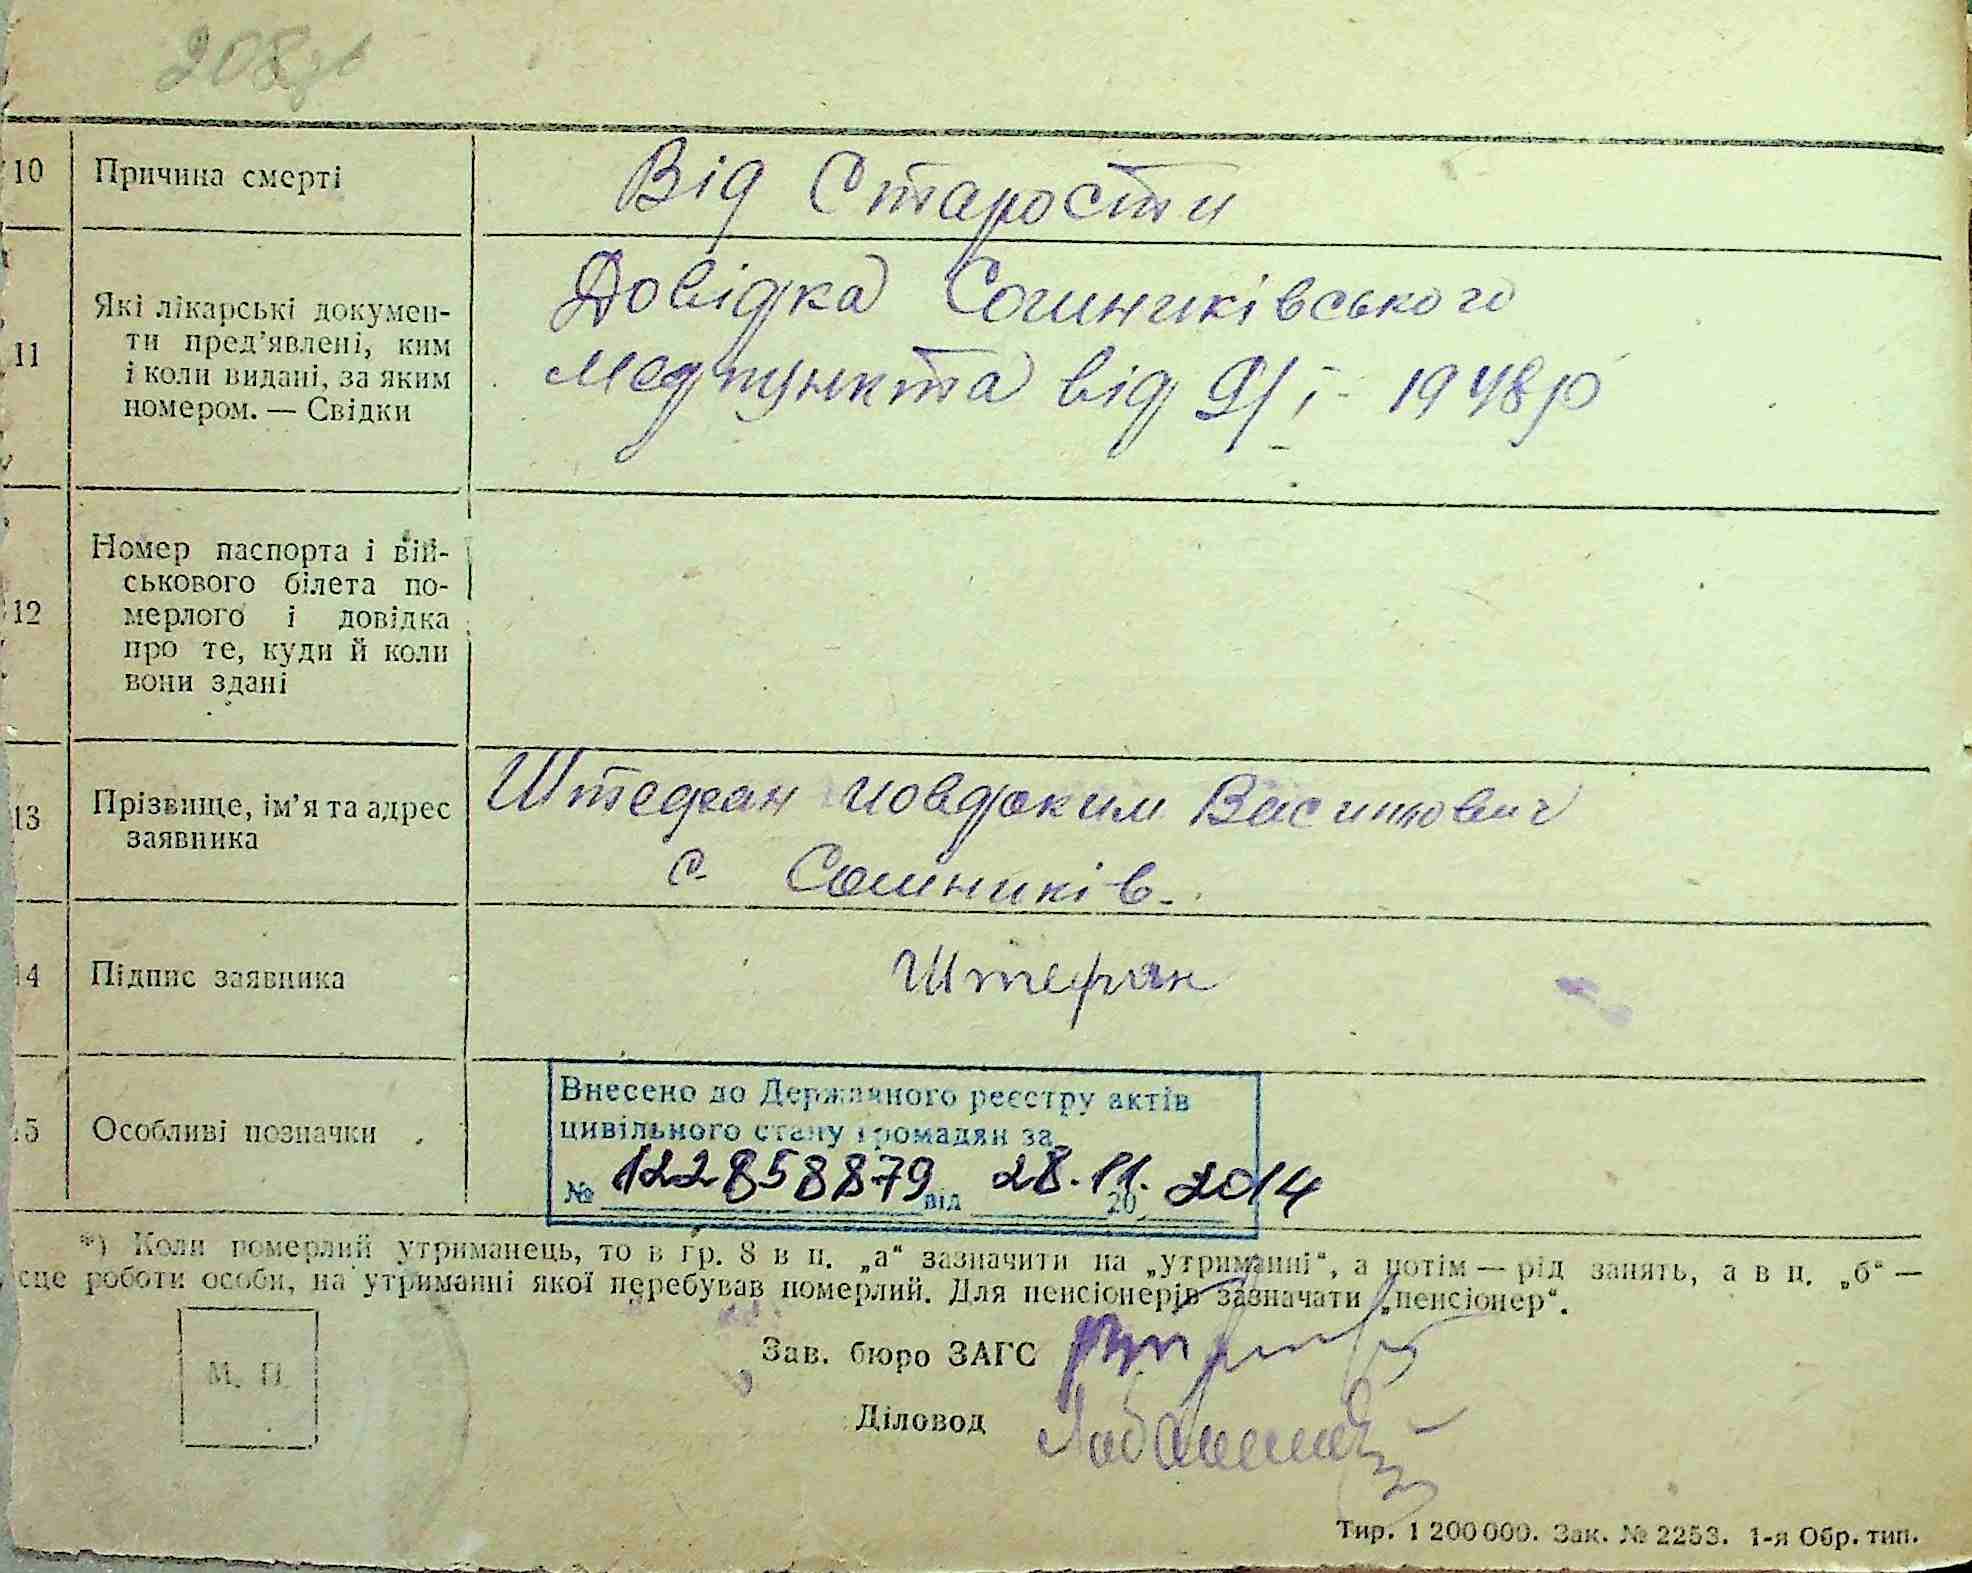 208
10 Причина смерті Від Старости
11 Які лікарські докумен-
ти пред’явлені, ким
і коли видані, за яким
номером. — Свідки
Довідка Сошниківського
медпункта від 9/I - 1948р
12 Номер паспорта і вій-
ськового білета по-
мерлого і довідка
про те, куди й коли
вони здані
13 Прізвище, ім’я та адрес
заявника
Штефан Йовдоким Васильович
с. Сошників.
14 Підпис заявника Штефан
15 Особливі позначки
Внесено до Державного реєстру актів
цивільного стану громадян за
№ 122858879 від 28.11. 20 2014
*) Коли померлий утриманець, то в гр. 8 в п. „а“ зазначити на „утриманні“, а потім — рід занять, а в п. „б“ —
сце роботи особи, на утриманні якої перебував померлий. Для пенсіонерів зазначати „пенсіонер“.
М. П.
Зав. бюро ЗАГС
Діловод
Тир. 1 200 000. Зак. № 2253. 1-я Обр. тип.